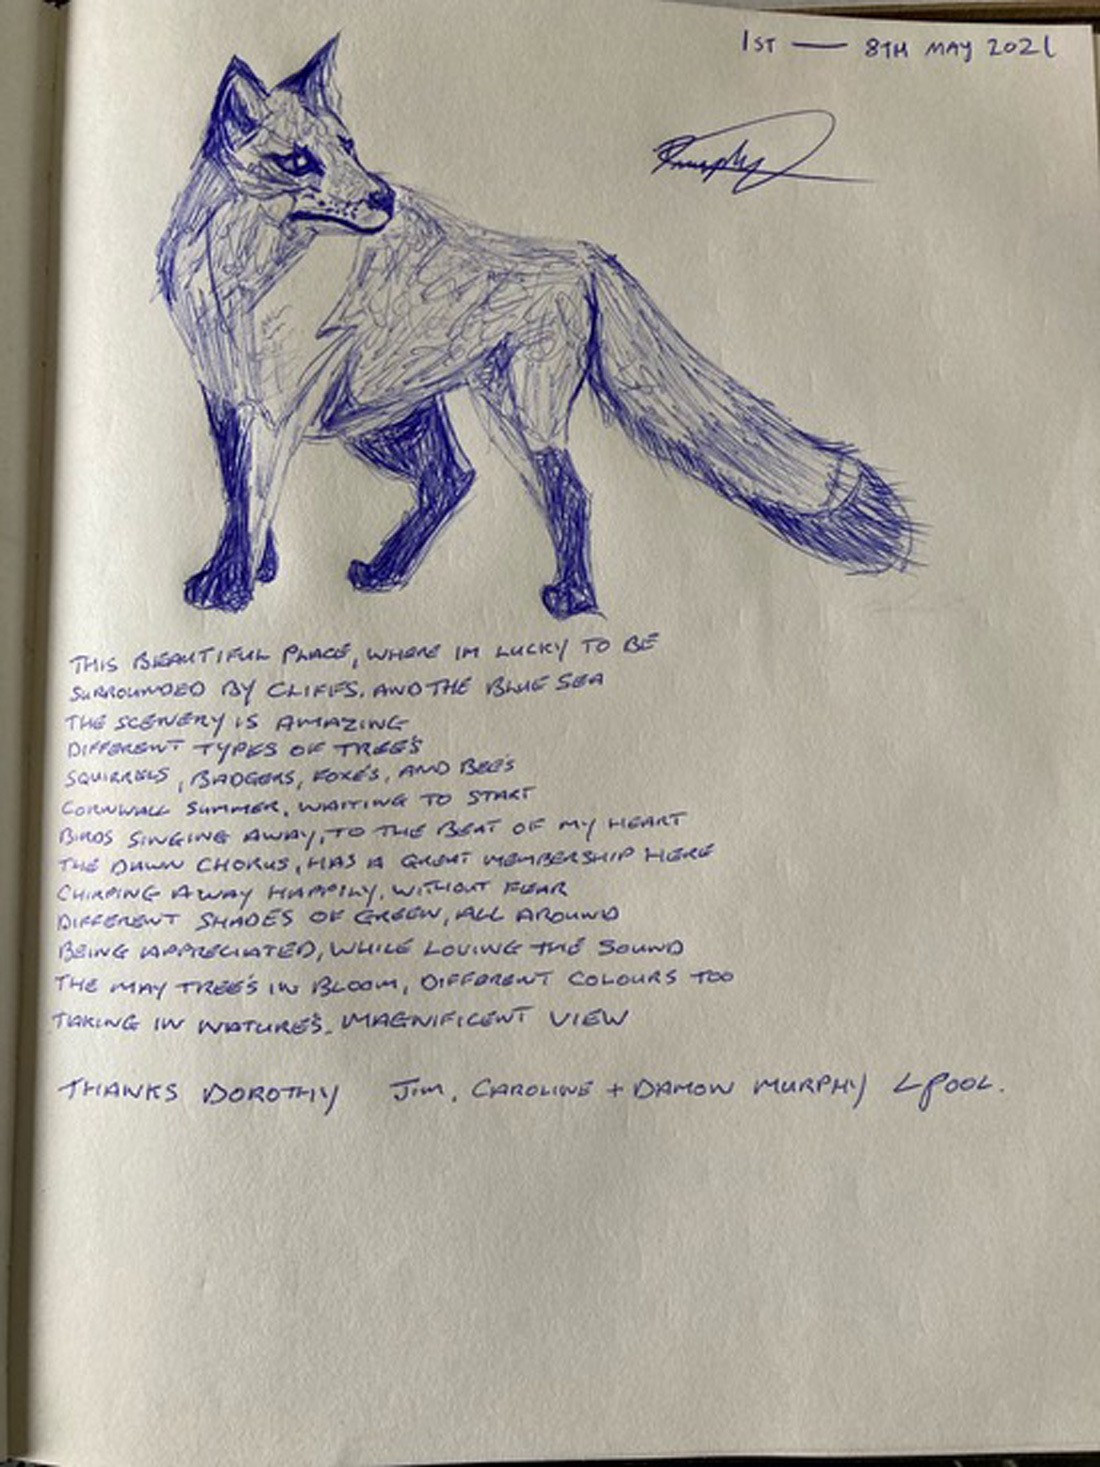 1ST — 8TH MAY 2021
Rmurphy
THIS BEAUTIFUL PLACE, WHERE IM LUCKY TO BE
SURROUNDED BY CLIFFS. AND THE BLUE SEA
THE SCENERY IS AMAZING
DIFFERENT TYPES OF TREE'S
SQUIRRELS, BADGERS, FOXE'S, AND BEE'S
CORNWALL SUMMER, WAITING TO START
BIRDS SINGING AWAY, TO THE BEAT OF MY HEART
THE DAWN CHORUS, HAS A GREAT MEMBERSHIP HERE
CHIRPING AWAY HAPPILY, WITHOUT FEAR
DIFFERENT SHADES OF GREEN, ALL AROUND
BEING APPRECIATED, WHILE LOVING THE SOUND
THE MAY TREE'S IN BLOOM, DIFFERENT COLOURS TOO
TAKING IN NATURE'S. MAGNIFICENT VIEW
THANKS DOROTHY JIM, CAROLINE + DAMON MURPHY LPOOL.